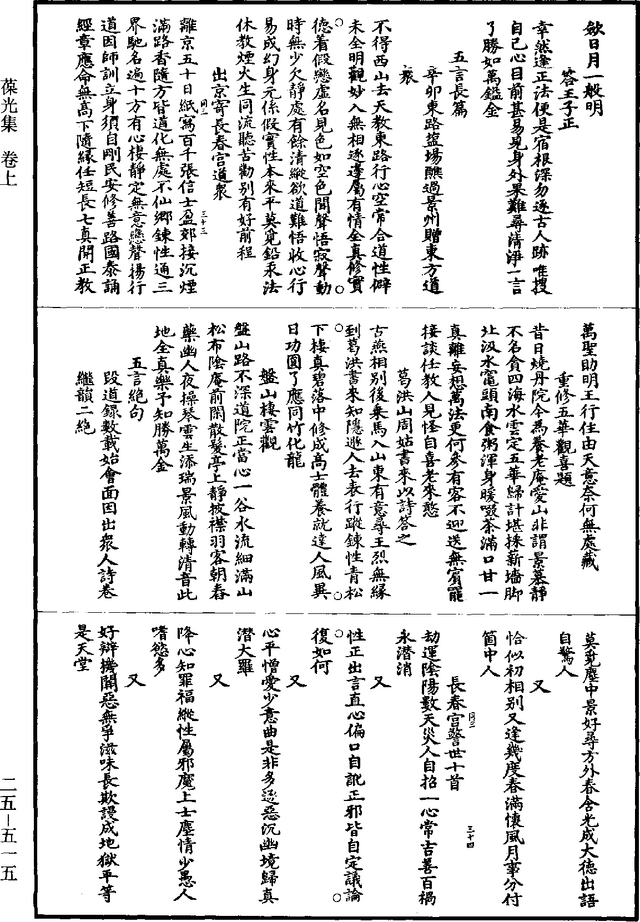 葆光集 卷上
二五－五一五
敛日月一般明
答王子正
幸然逢正法便是宿根深勿逐古人跡唯搜
自己心目前甚易見身外果難尋清淨一言
了勝如萬鎰金
五言長篇
辛卯東路盜場醮過景州贈東方道
衆
不得西山去天教東路行心空常合道性僻
未全明觀妙入無相逐邊屬有情全真修實
德着假戀虛名見色如空色聞聲悟寂聲動
時無少欠靜處有餘清縱欲道難悟收心行
易成幻身元係假實性本來平莫覓鉛汞法
休教煙火生同流聽古勸別有好前程
出京寄長春宮道衆
離京五十日紙寫百千張信士盈郊接沉煙
滿路香隨方皆道化無處不仙鄉鍊性通三
界馳名過十方有心棲靜定無意戀聲揚行
道因師訓立身須自剛民安修善路國泰誦
經章應命無高下隨緣任短長七真開正教
萬聖助明王行住由天意奈何無處藏
重修五華觀喜題
昔日燒丹院今為養老庵愛山非謂景慕靜
不名貪四海水雲定五華歸計堪採薪墻脚
北汲水竈頭南食粥渾身暖啜茶滿口甘一
真離妄想萬法更何參有客不迎送無賓罷
接談任教人見怪自喜老來憨
葛洪山周姑書來以詩答之
古燕相別後乘馬入山東有意尋王烈無緣
到葛洪書來知隱遯人去表行蹤鍊性青松
下棲真碧落中修成高士體養就達人風異
日功圓了應同竹化龍
盤山棲雲觀
盤山路不深道院正當心一谷水流細滿山
松布陰庵前閑散髮亭上靜披襟羽客朝舂
藥幽人夜操琴雲生添瑞景風動轉清音此
地全真樂子知勝萬金
五言絕句
繼韻二絕
段道錄數載始會面因出衆人詩卷
莫覓塵中景好尋方外春含光成大德出語
自驚人
又
恰似初相別又逢幾度春滿懷風月事分付
箇中人
長春宮警世十首
劫運陰陽數天災人自招一心常吉善百禍
永潛消
又
性正出言直心偏口自訛正邪皆自定議論
復如何
又
心平憎愛少意曲是非多逐惡沉幽境歸真
潛大羅
又
降心知罪福縱性屬邪魔上士塵情少愚人
嗜慾多
又
好辯機關惡無爭滋味長欺謾成地獄平等
是天堂